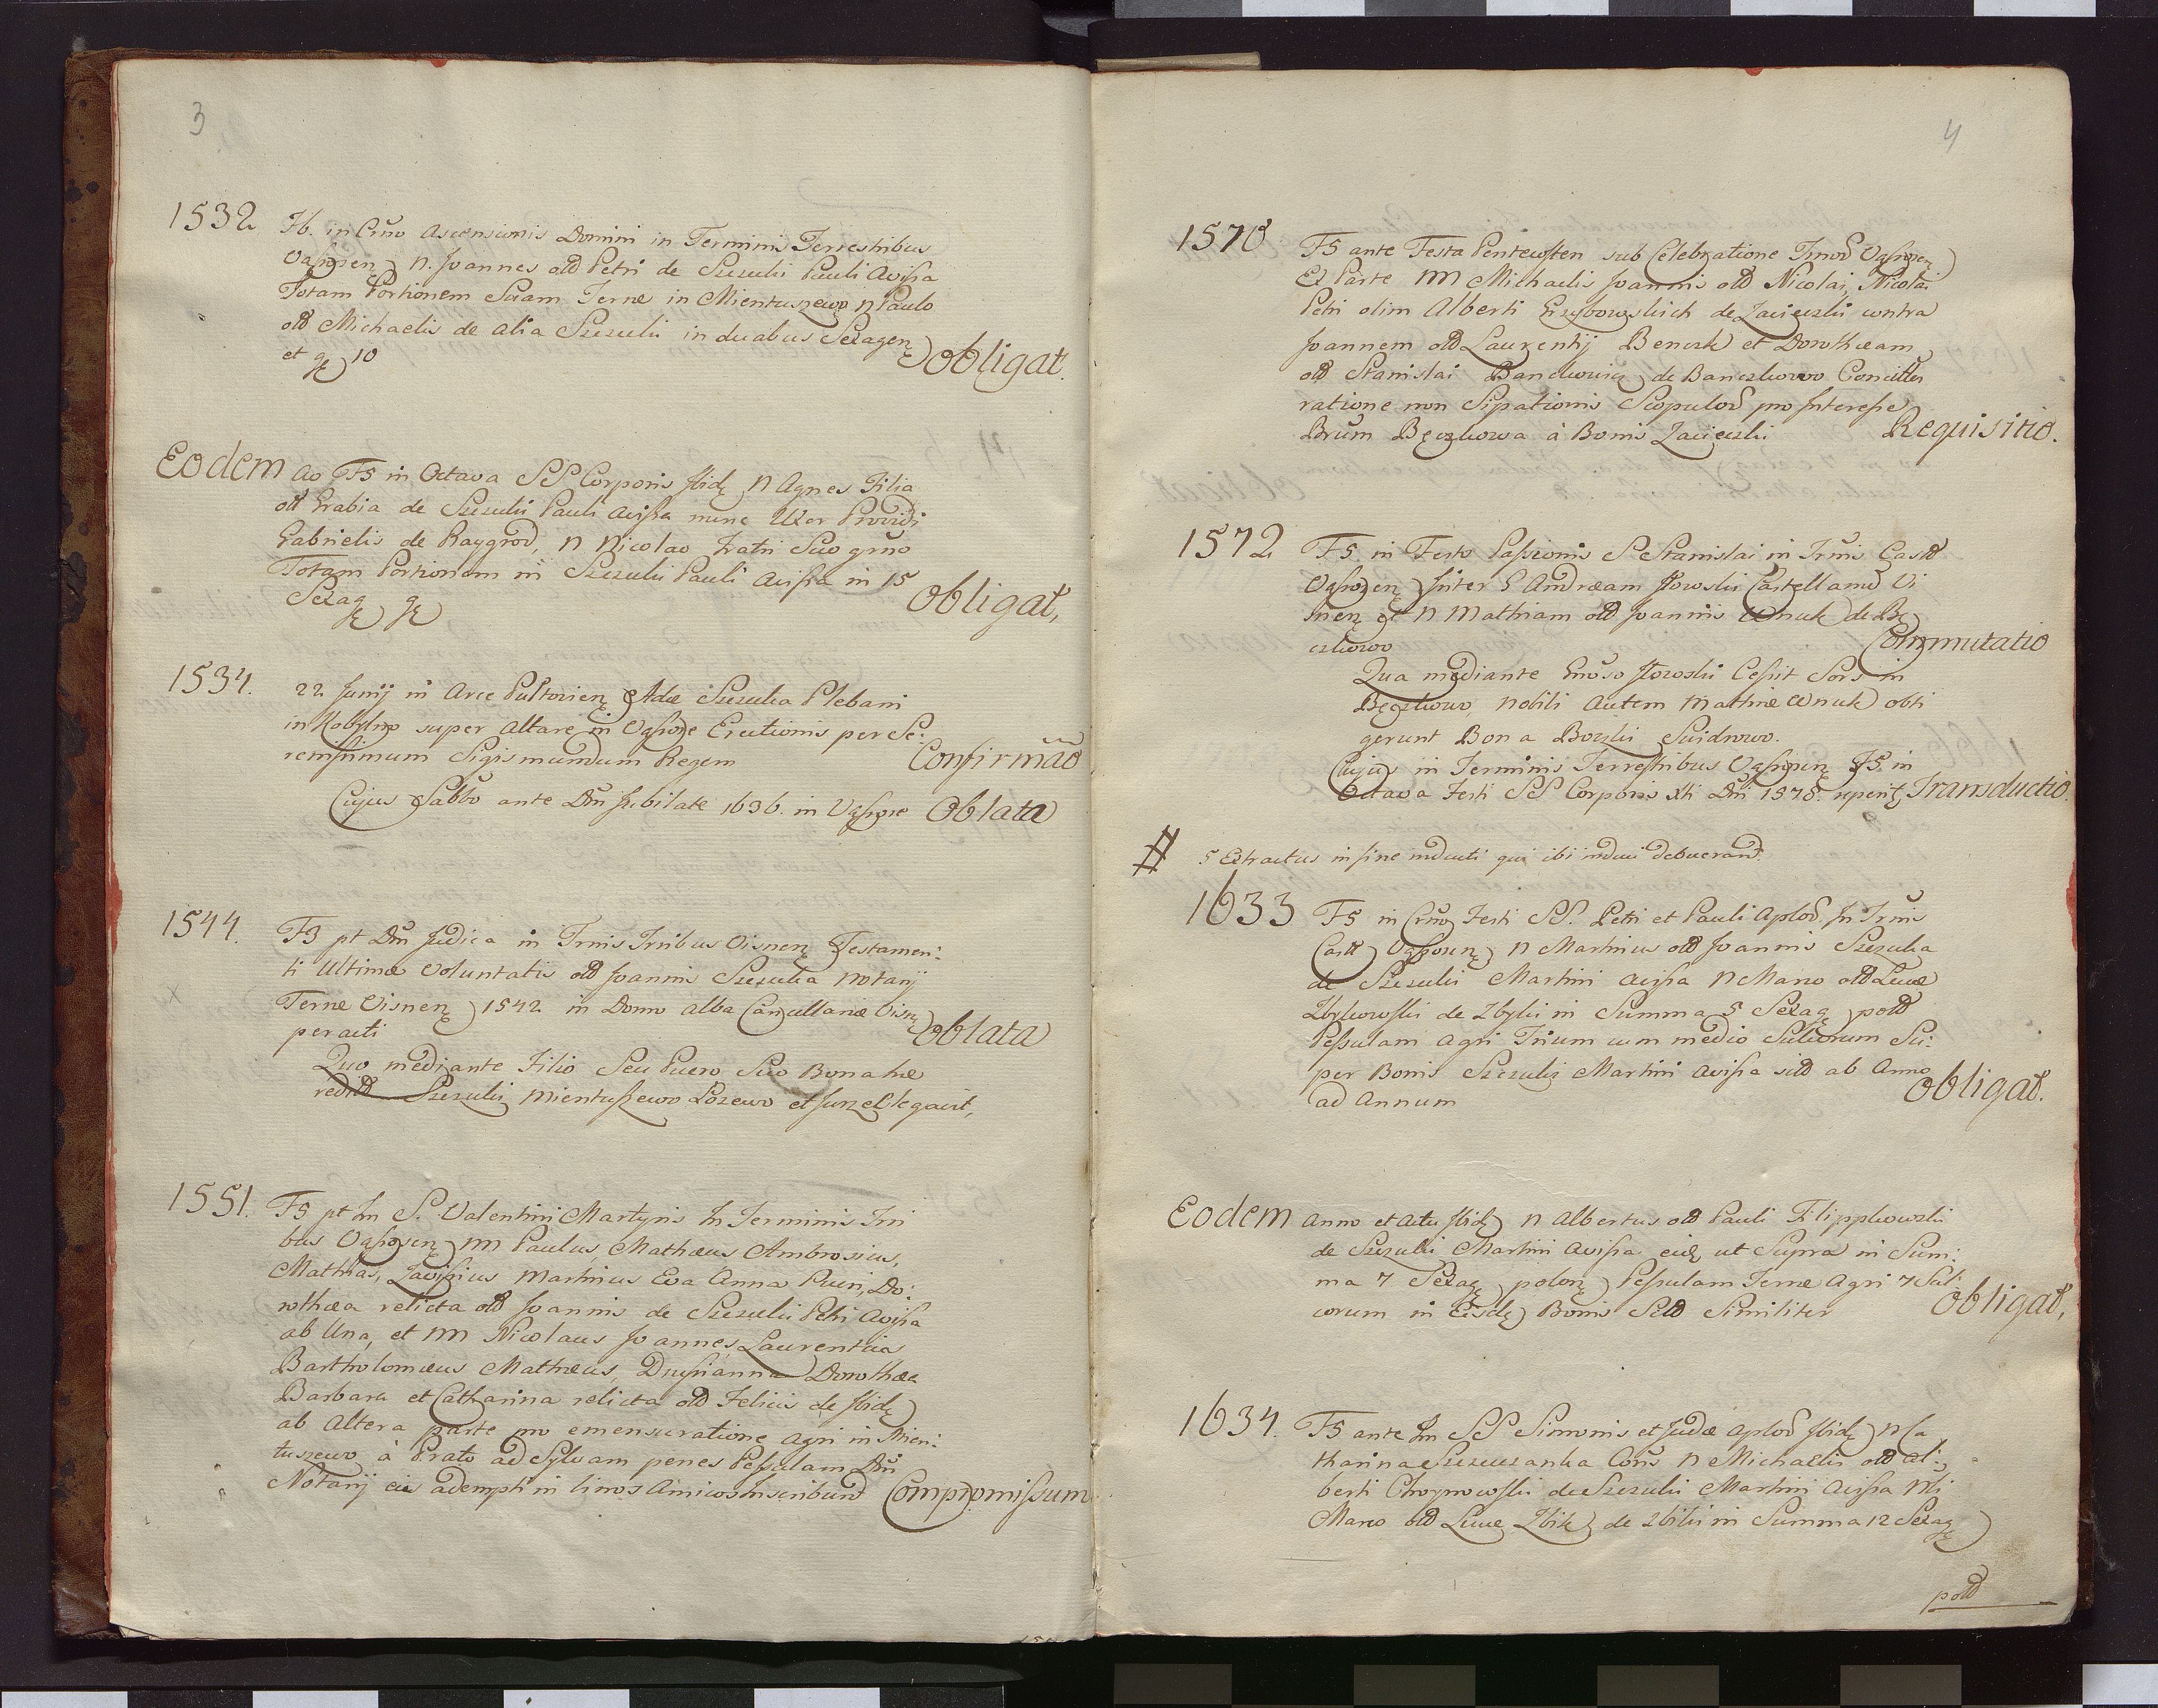 3
1532 F6. in Crno Ascensionis Domini in Terminis Terrestribus
Vąsosen. N. Joannes old Petri de Szczulii Pauli Avissa
Totam Portionem Suam Terræ in Mientuszewo N Paulo
old Michaelis de alia Szczulii in duabus Sexagen
et gr 10 obligat.
Eodem Ao F5 in Octava SS Corporis Ibid N Agnes Filia
old Grabia de Szczulii Pauli Avissa nunc Uxor Providi
Gabrielis de Raygrod, N Nicolao Fratri Suo grno
Totam Portionem in Szczulii Pauli Avissa in 15
Sexag obligat,
1534. 22 Junij in Arce Pultovien Adæ Szczulia Plebani
in Kobylino super Altare in Vąsosze Erectionis per Se:
renissimum Sigismundum Regem Confirmão
Cujus Sabbo ante Dm Jubilate 1636. in Vąsosze Oblata
1544. F3 pt Dm Judica in Trnis Tribus Visnen Testamen:
ti Ultimæ Voluntatis old Joannis Szczulia Notarij
Terræ Visnen 1542 in Domo alba Cancellariæ Visn
peracti oblata
Quo mediante Filio Seu Puero Suo Bona hæ
redit Szczulii Mientuszewo Łozewo et Jurzec legavit,
1551. F5 pt Fm S. Valentini Martyris In Terminis Tri
bus Vąsosen NN Paulus, Mathæus Ambrosius,
Mathias, Zavissius Martinus Eva Anna Pueri, Do:
rothæa relicta old Joannis de Szczulii Petri Avissa
ab Una, et NN Nicolaus Joannes, Laurentia
Bartholomæus Mathæus, Drusianna Dorothæa
Barbara et Catharina relicta old Felicis de Ibid
ab Altera parte pro emensuratione agri in Mien:
tuszewo à Prato ad Sylvam penes Pessulam Dni
Notarij eis adempti in binos Amicos Inscribunt Compromissum
4
1570 F5 ante Festa Pentecosten sub Celebratione Trmor Vąsosen
Ex Parte NN Michaelis Joannis old Nicolai, Nicolai
Petri olim Alberti Grzybowskich de Zacieczki contra
Joannem old Laurentij Benczk et Dorotheam
old Stanislai Banckowic de Banczkowo
ratione non Sipationis Scopulor pro Interesse
Brum Bęczkowa à Bonis Zacieczki Requisitio.
1572 F5. in Festo Passionis S Stanislai in Trnis Castr
Vąsozen Inter G Andræam Iłowski Castellanum Vi
snen et N Mathiam old Joannis Wnuk de Bę
czkowo Commutatio
Qua mediante Gnoso Iłowski Cessit Sors in
Bęczkowo, nobili Autem Mathiæ Wnuk obti
gerunt Bona Boczki Swidrowo.
Cujus in Terminis Terrestribus Vąsosen F5 in
Octava Festi SS Corporis Xti Dni 1578. reperit, Transductio.
# 5 Extractus in fine inducti qui ibi induci debuerant.
1633 F5 in Crno Festi SS. Petri et Pauli Aplor In Trnis
Castr Vąsosen N Martinus old Joannis Szczulia
de Szczulii Martini Avissa N Marco old Lucæ
Zbikowski de Zbiki in Summa 5 Sexag pold
Pessulam Agri Trium cum medio Sulcorum Su:
per Bonis Szczulii Martini Avissa sid ab Anno
ad Annum obligat.
Eodem Anno et Actu Ibid N Albertus old Pauli Filipkowski
de Szczulii Martini Avissa eid ut Supra in Sum:
ma 7 Sexag polon Pessulam Terræ Agri 7 Sul
corum in Eisd Bonis Sid Similiter obligat,
1634. F5 ante Fm SS Simonis et Judæ Aplor Ibid N Ca
tharina Szczuczanka Cons N Michaelis old Al:
berti Choynowski de Szczulii Martini Avissa Nli
Marco old Lucæ Zbik de Zbiki in Summa 12 Sexag
pold